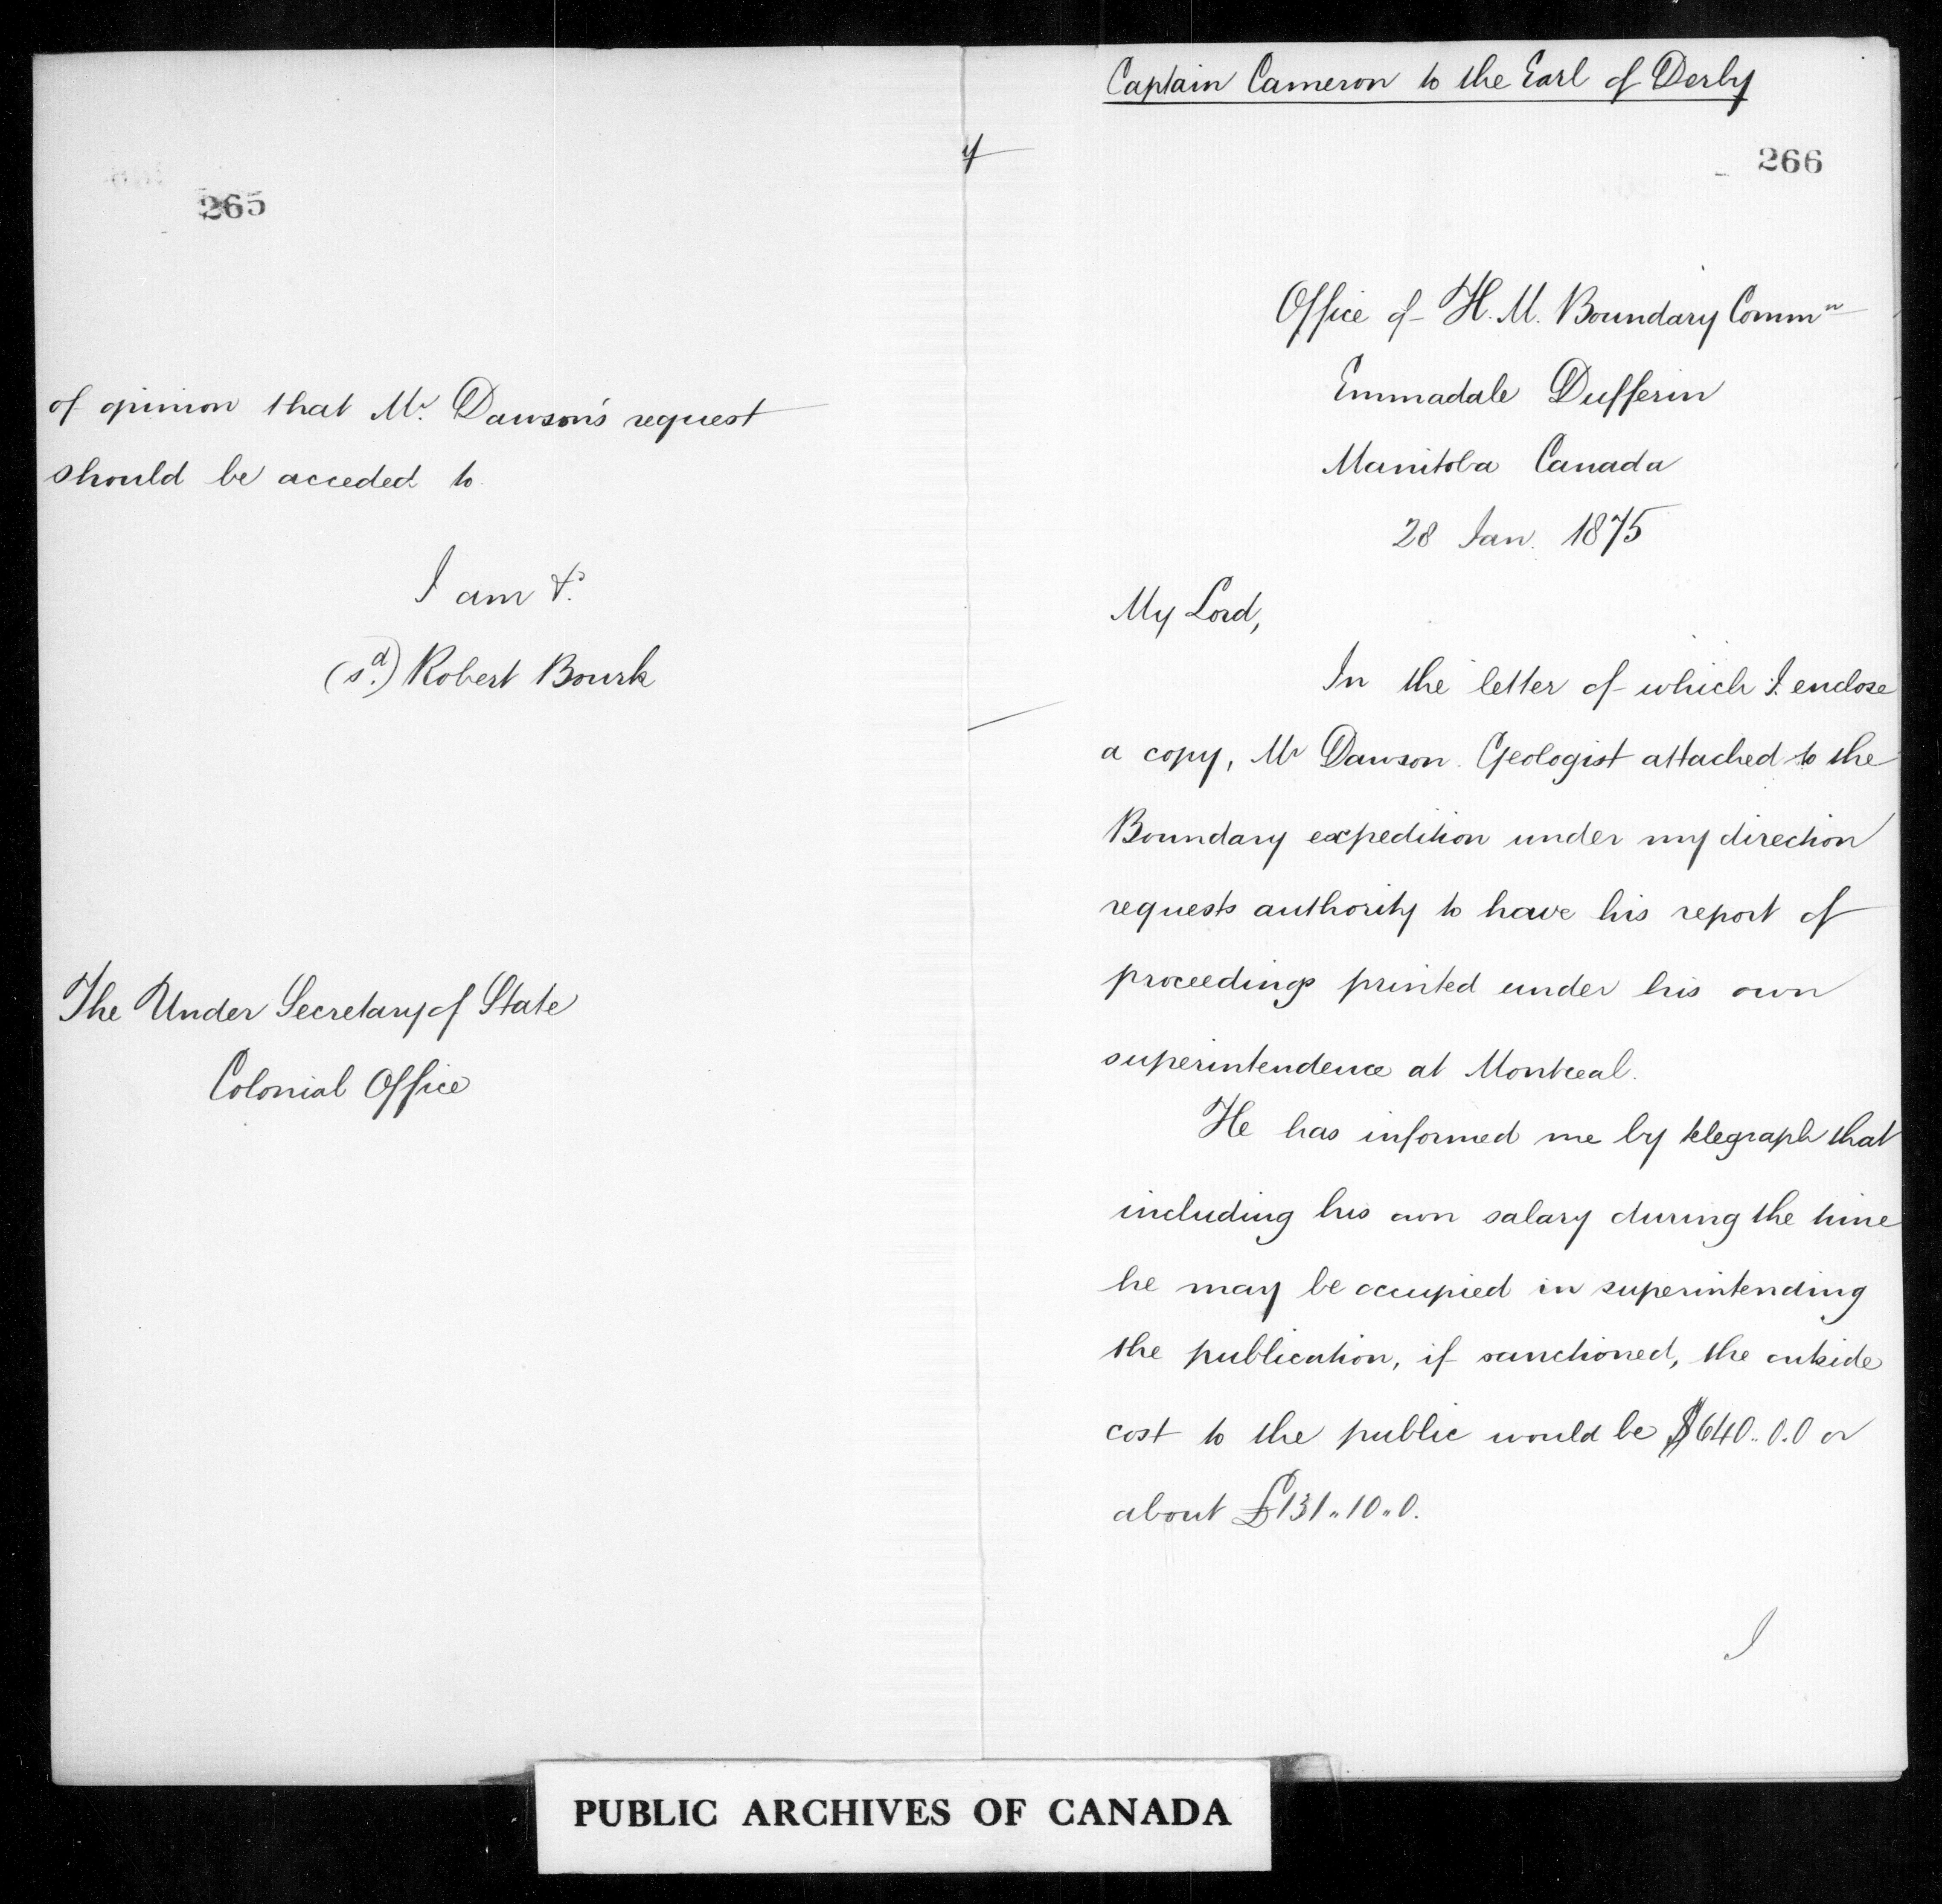 265
of opinion that Mr. Dawson's request
should be acceded to.
I am &c.
(sd.) Robert Bourk
The Under Secretary of State
Colonial Office
Captain Cameron to the Earl of Derby
266
Office of H. M. Boundary Commn
Emmadale Dufferin
Manitoba Canada
28 Jan. 1875
My Lord,
In the letter of which I enclose
a copy, Mr Dawson. Geologist attached to the
Boundary expedition under my direction
requests authority to have his report of
proceedings printed under his own
superintendence at Montreal.
He has informed me by telegraph that
including his own salary during the time
he may be occupied in superintending
the publication, if sanctioned, the outside
cost to the public would be $640..0.0 or
about £131..10..0.
I
PUBLIC ARCHIVES OF CANADA